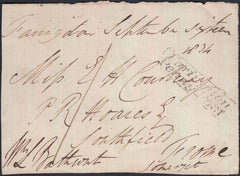 Farringdon Septbr sixteen
1834
Miss E H Courtenay
P R Hoares Esq
Southfield
Frome
Somerset
Wm L Bathurst